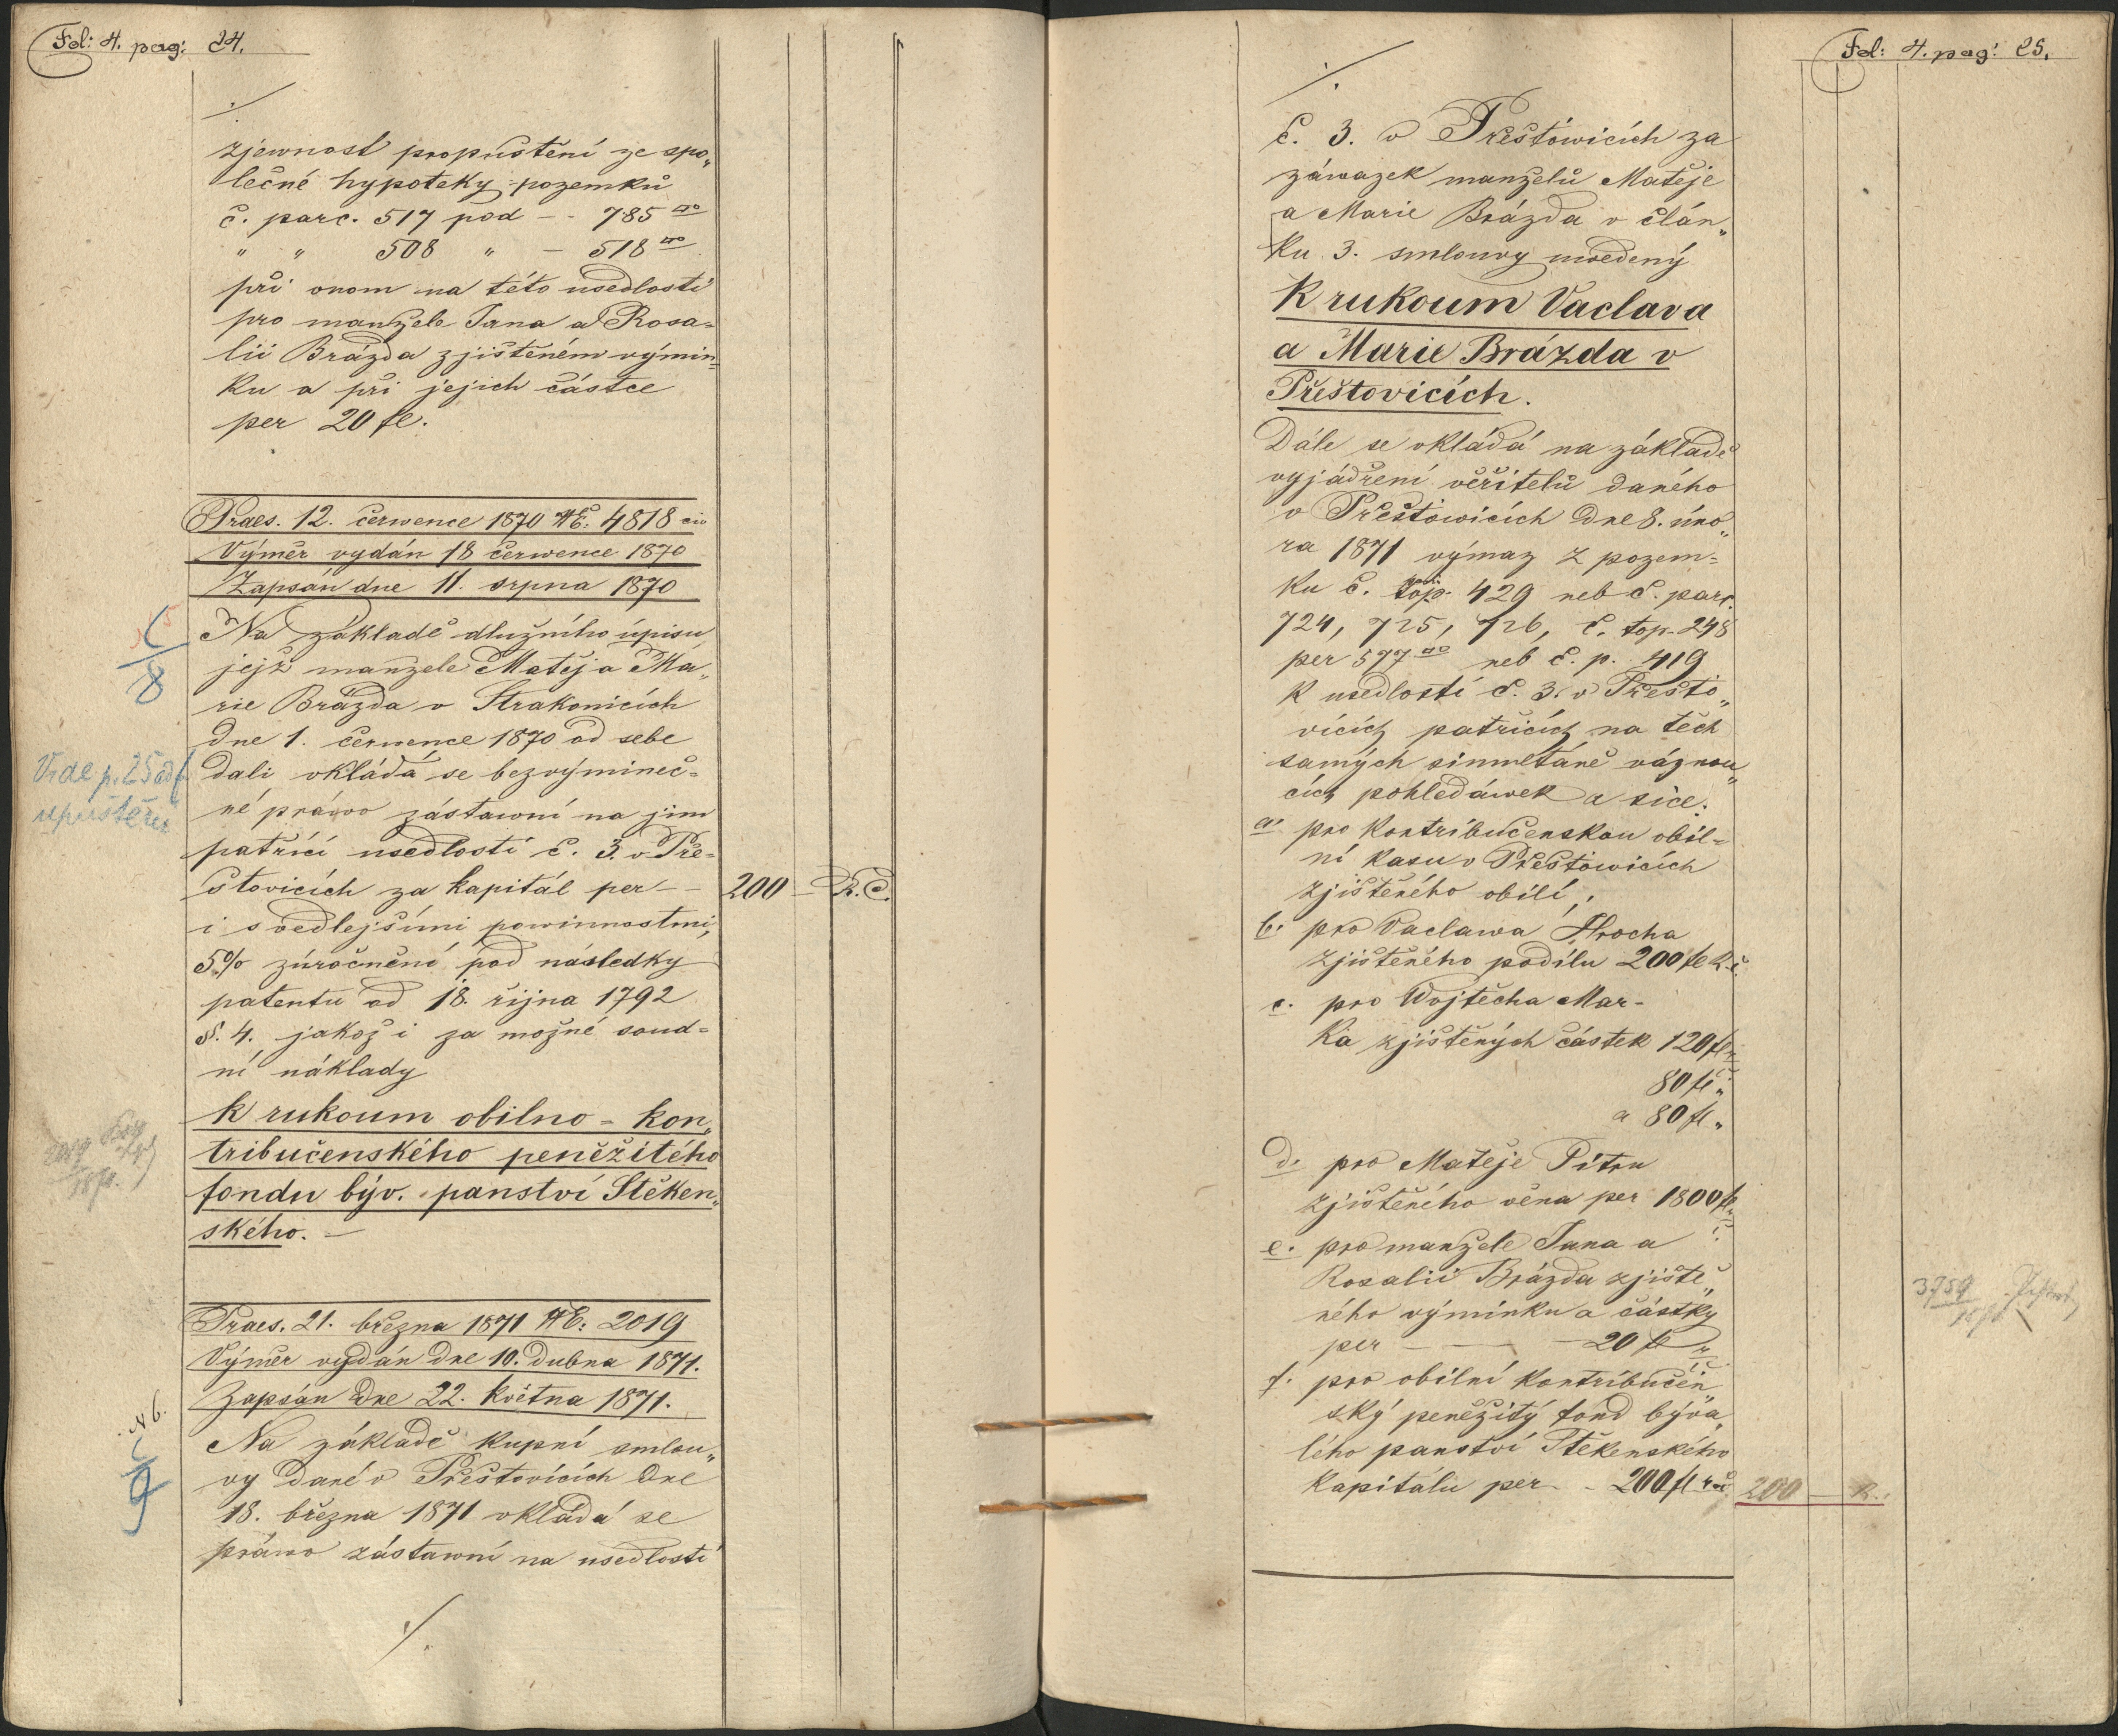 Fol: 4. pag: 24.
./.
zjewnost propuštění ze spo„
lečné hypoteky pozemků
č. parc. 517 pod - - 785
" " 508 " - 518
při onom na této usedlosti
pro manžele Jana a Rosa=
lii Brázda zjištěném výmin=
ku a při jejich částce
per 20 fl.
Praes. 12. července 1870 NE: 4818 civ
Výměr vydán 18 července 1870
Zapsán dne 11. srpna 1870
C
8
Na základě dlužního úpisu
jejž manžele Matěj a Ma„
rie Brázda v Strakonicích
dne 1. července 1870 od sebe
Vide p. 25 ad f
dali vkládá se bezvýmineč=
upuštění
né právo zástawní na jim
patřící usedlosti č. 3. v Pře=
stovicích za kapitál per - - 200 - R.Č.
i s vedlejšími powinnostmi,
5% zúročnění pod následky
patentu od 18. října 1792
§. 4. jakož i za možné soud=
ní náklady
k rukoum obilno = kon„
tribučenského peněžitého
2019
fondu býv. panství Štěken„
ského. —
Praes. 21. března 1871 NE: 2019
Výměr vydán dne 10. dubna 1871.
Zapsán dne 22. května 1871.
N 6.
C
9
Na základě kupní smlou„
vy dané v Přestovicích dne
18. března 1871 vkládá se
práwo zástawní na usedlosti
./.
Fol: 4. pag: 25.
./.
č. 3. v Přeštowicích za
záwazek manželů Matěje
a Marie Brázda v člán„
ku 3. smlouwy uwedený
K rukoum Vaclava
a Marie Brázda v
Přeštovicích.
Dále se vkládá na základě
vyjádření věřitelů daného
v Přeštowicích dne 8. úno„
ra 1871 výmaz z pozem=
ku č. top. 429 neb č. parc.
724, 725, 726, č. top. 248
per 577 neb č. p. 419
k usedlosti č. 3. v Přešto„
vicích patřících na těch
samých simultáně váznou„
cích pohledáwek a sice:
a. pro kontribučenskou obil=
ní kasu v Přeštowicích
zjištěného obilí,
b. pro Vaclawa Hrocha
zjištěného podílu 200 fl R.č.
c. pro Wojtěcha Mar-
ka zjištěných částek 120 fl
80 fl „
a 80 fl „
d. pro Matěje Pitru
zjištěného věna per 1800 fl
e. pro manžele Jana a
Rosalii Brázda zjiště„
ného výminku a částky
per — — 20 fl „
3759
f. pro obilní kontribučen„
ský peněžitý fond býva„
lého panství Štěkenského
kapitálu per - - 200 fl r.č. 200 — R.